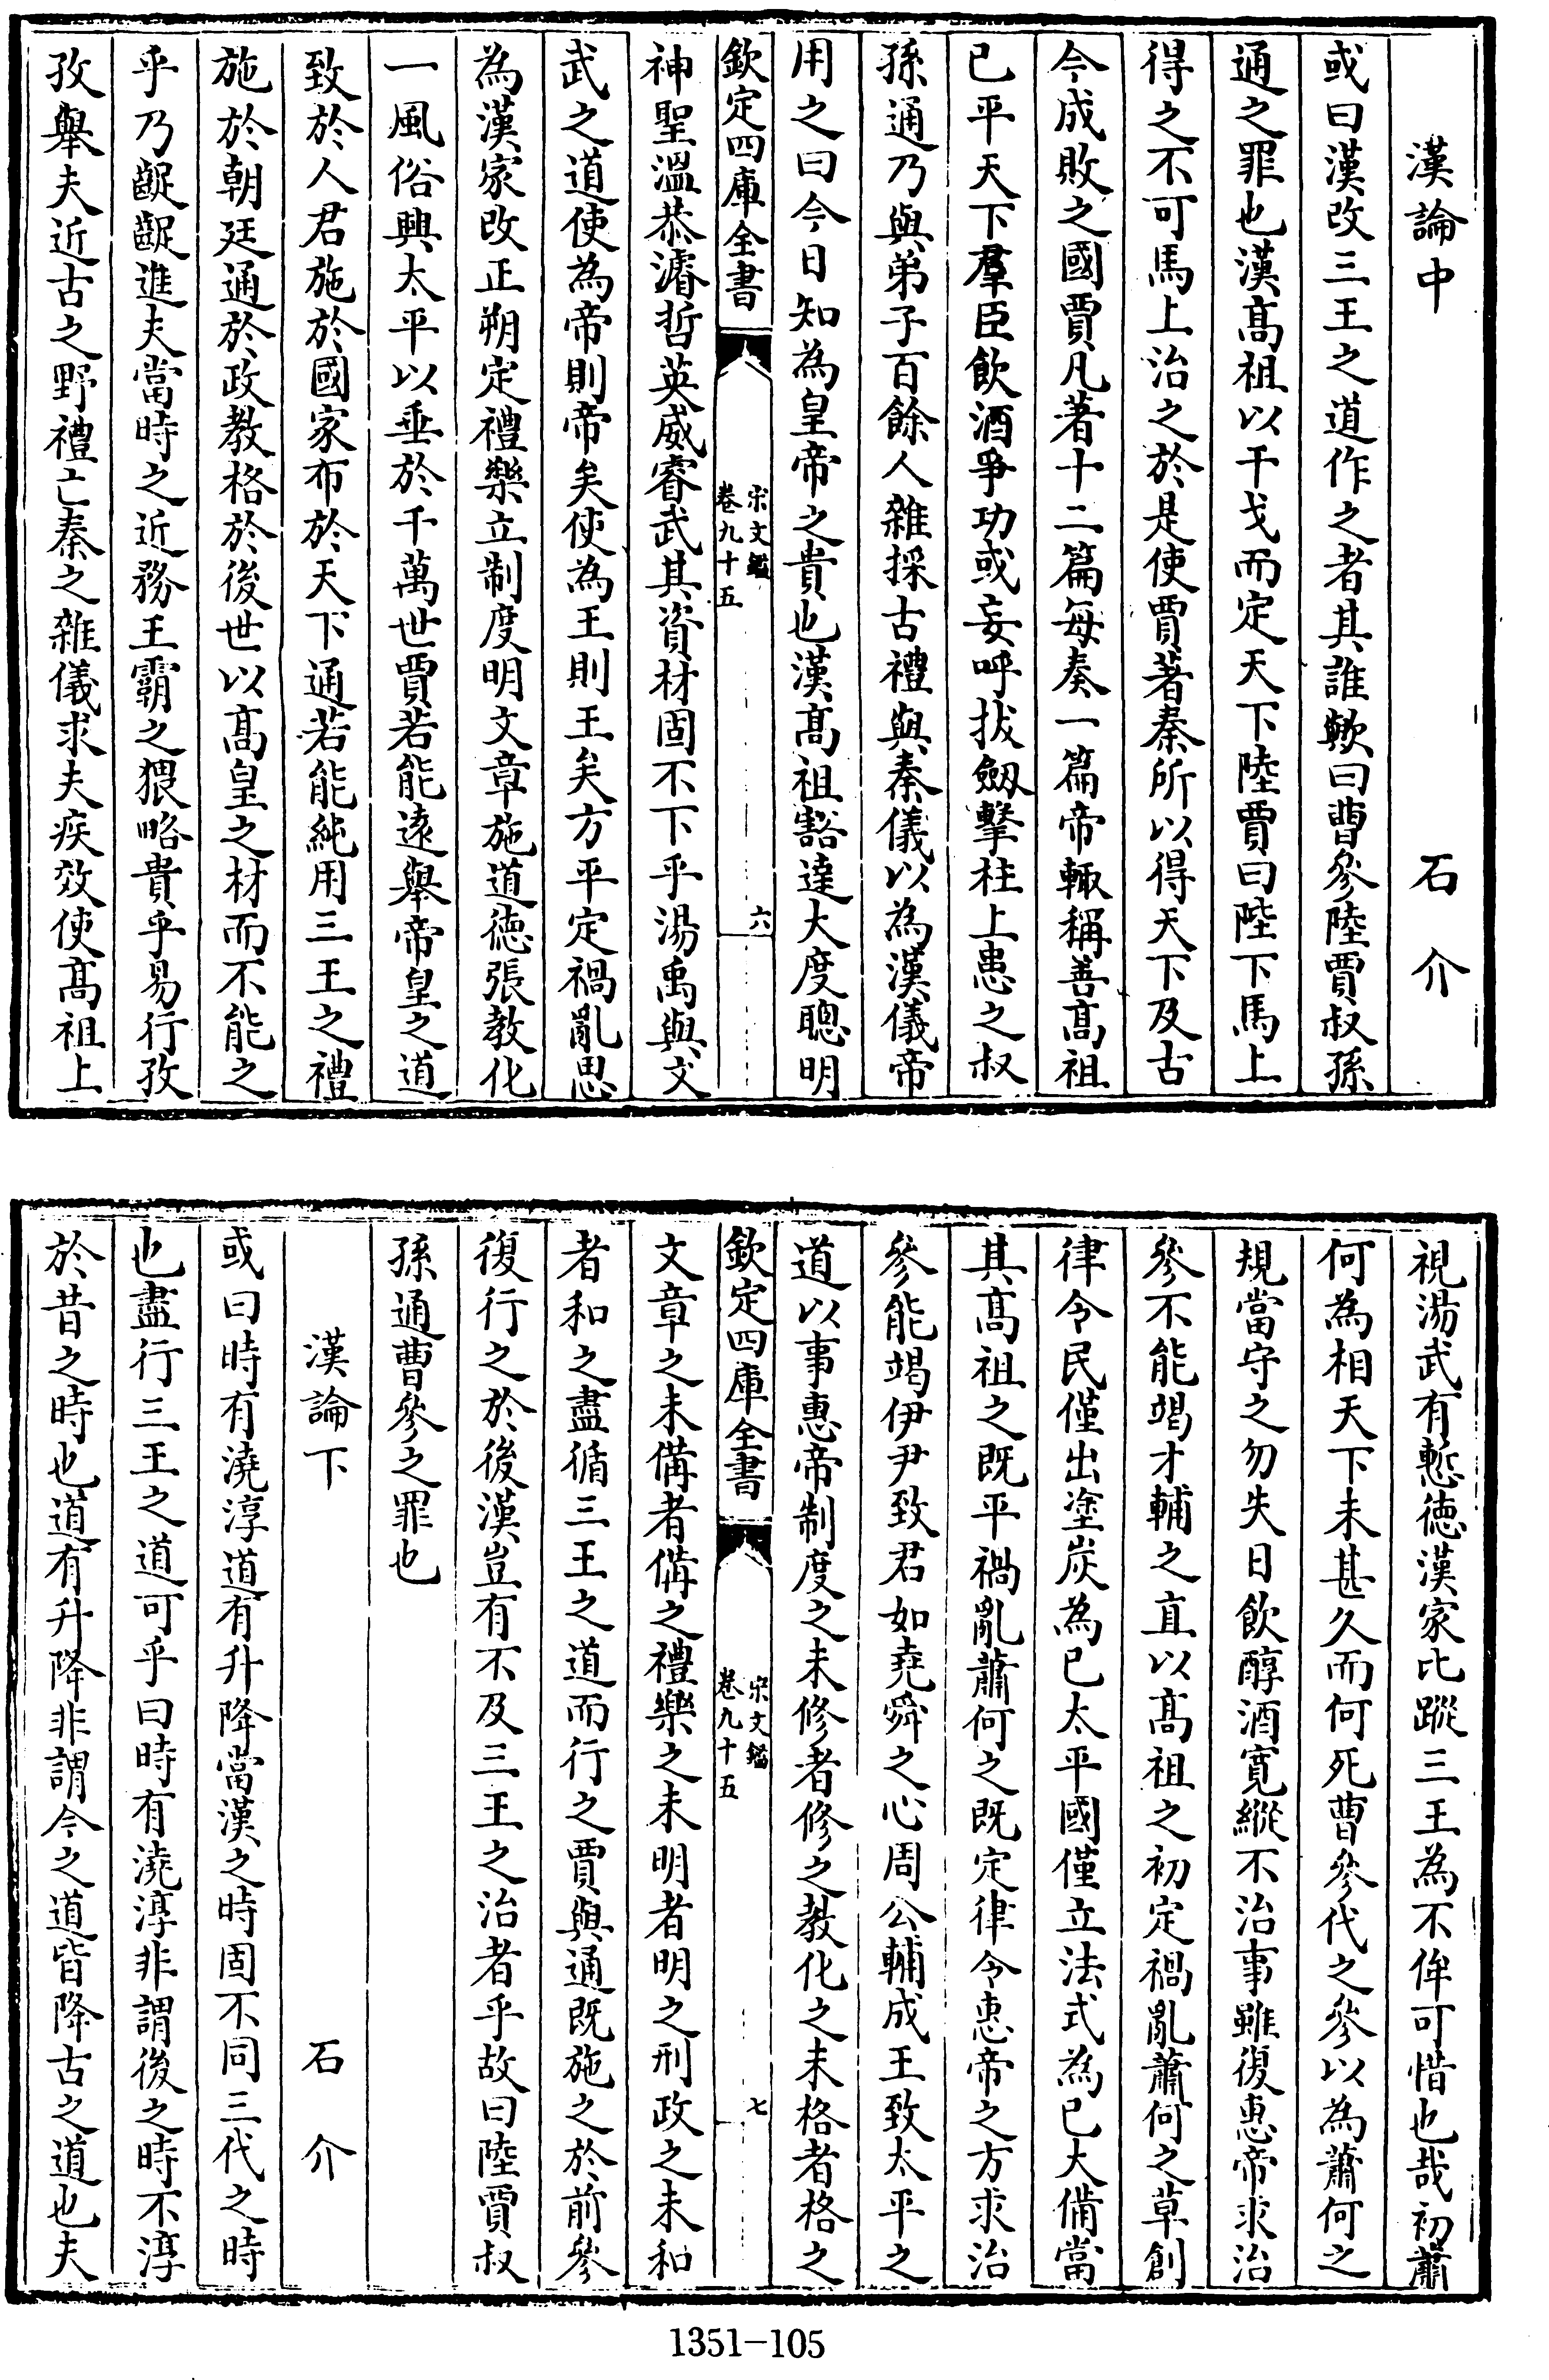 漢論中　石介
或曰漢改三王之道作之者其誰歟曰曹參陸賈叔孫
通之罪也漢髙祖以干戈而定天下陸賈曰陛下馬上
得之不可馬上治之於是使賈著秦所以得天下及古
今成敗之國賈凡著十二篇每奏一篇帝輙稱善髙祖
已平天下羣臣飲酒爭功或妄呼拔劔擊柱上患之叔
孫通乃與弟子百餘人雜採古禮與秦儀以為漢儀帝
用之曰今日知為皇帝之貴也漢髙祖豁達大度聰明
欽定四庫全書　宋文鑑卷九十五　六
神聖溫恭濬哲英威睿武其資材固不下乎湯禹與文
武之道使為帝則帝矣使為王則王矣方平定禍亂思
為漢家改正朔定禮樂立制度明文章施道徳張教化
一風俗興太平以垂於千萬世賈若能逺舉帝皇之道
致於人君施於國家布於天下通若能純用三王之禮
施於朝廷通於政教格於後世以髙皇之材而不能之
乎乃齪齪進夫當時之近務王霸之猥略貴乎易行孜
孜舉夫近古之野禮亡秦之雜儀求夫疾效使髙祖上
視湯武有慙徳漢家比蹤三王為不侔可惜也哉初蕭
何為相天下未甚久而何死曹參代之參以為蕭何之
規當守之勿失日飲醇酒寛縱不治事雖復惠帝求治
參不能竭才輔之直以髙祖之初定禍亂蕭何之草創
律令民僅出塗炭為已太平國僅立法式為已大備當
其髙祖之既平禍亂蕭何之既定律令惠帝之方求治
參能竭伊尹致君如堯舜之心周公輔成王致太平之
道以事惠帝制度之未修者修之教化之未格者格之
欽定四庫全書　宋文鑑卷九十五　七
文章之未備者備之禮樂之未明者明之刑政之未和
者和之盡循三王之道而行之賈與通既施之於前參
復行之於後漢豈有不及三王之治者乎故曰陸賈叔
孫通曹參之罪也
漢論下　石介
或曰時有澆淳道有升降當漢之時固不同三代之時
也盡行三王之道可乎曰時有澆淳非謂後之時不淳
於昔之時也道有升降非謂今之道皆降古之道也夫
1351-105